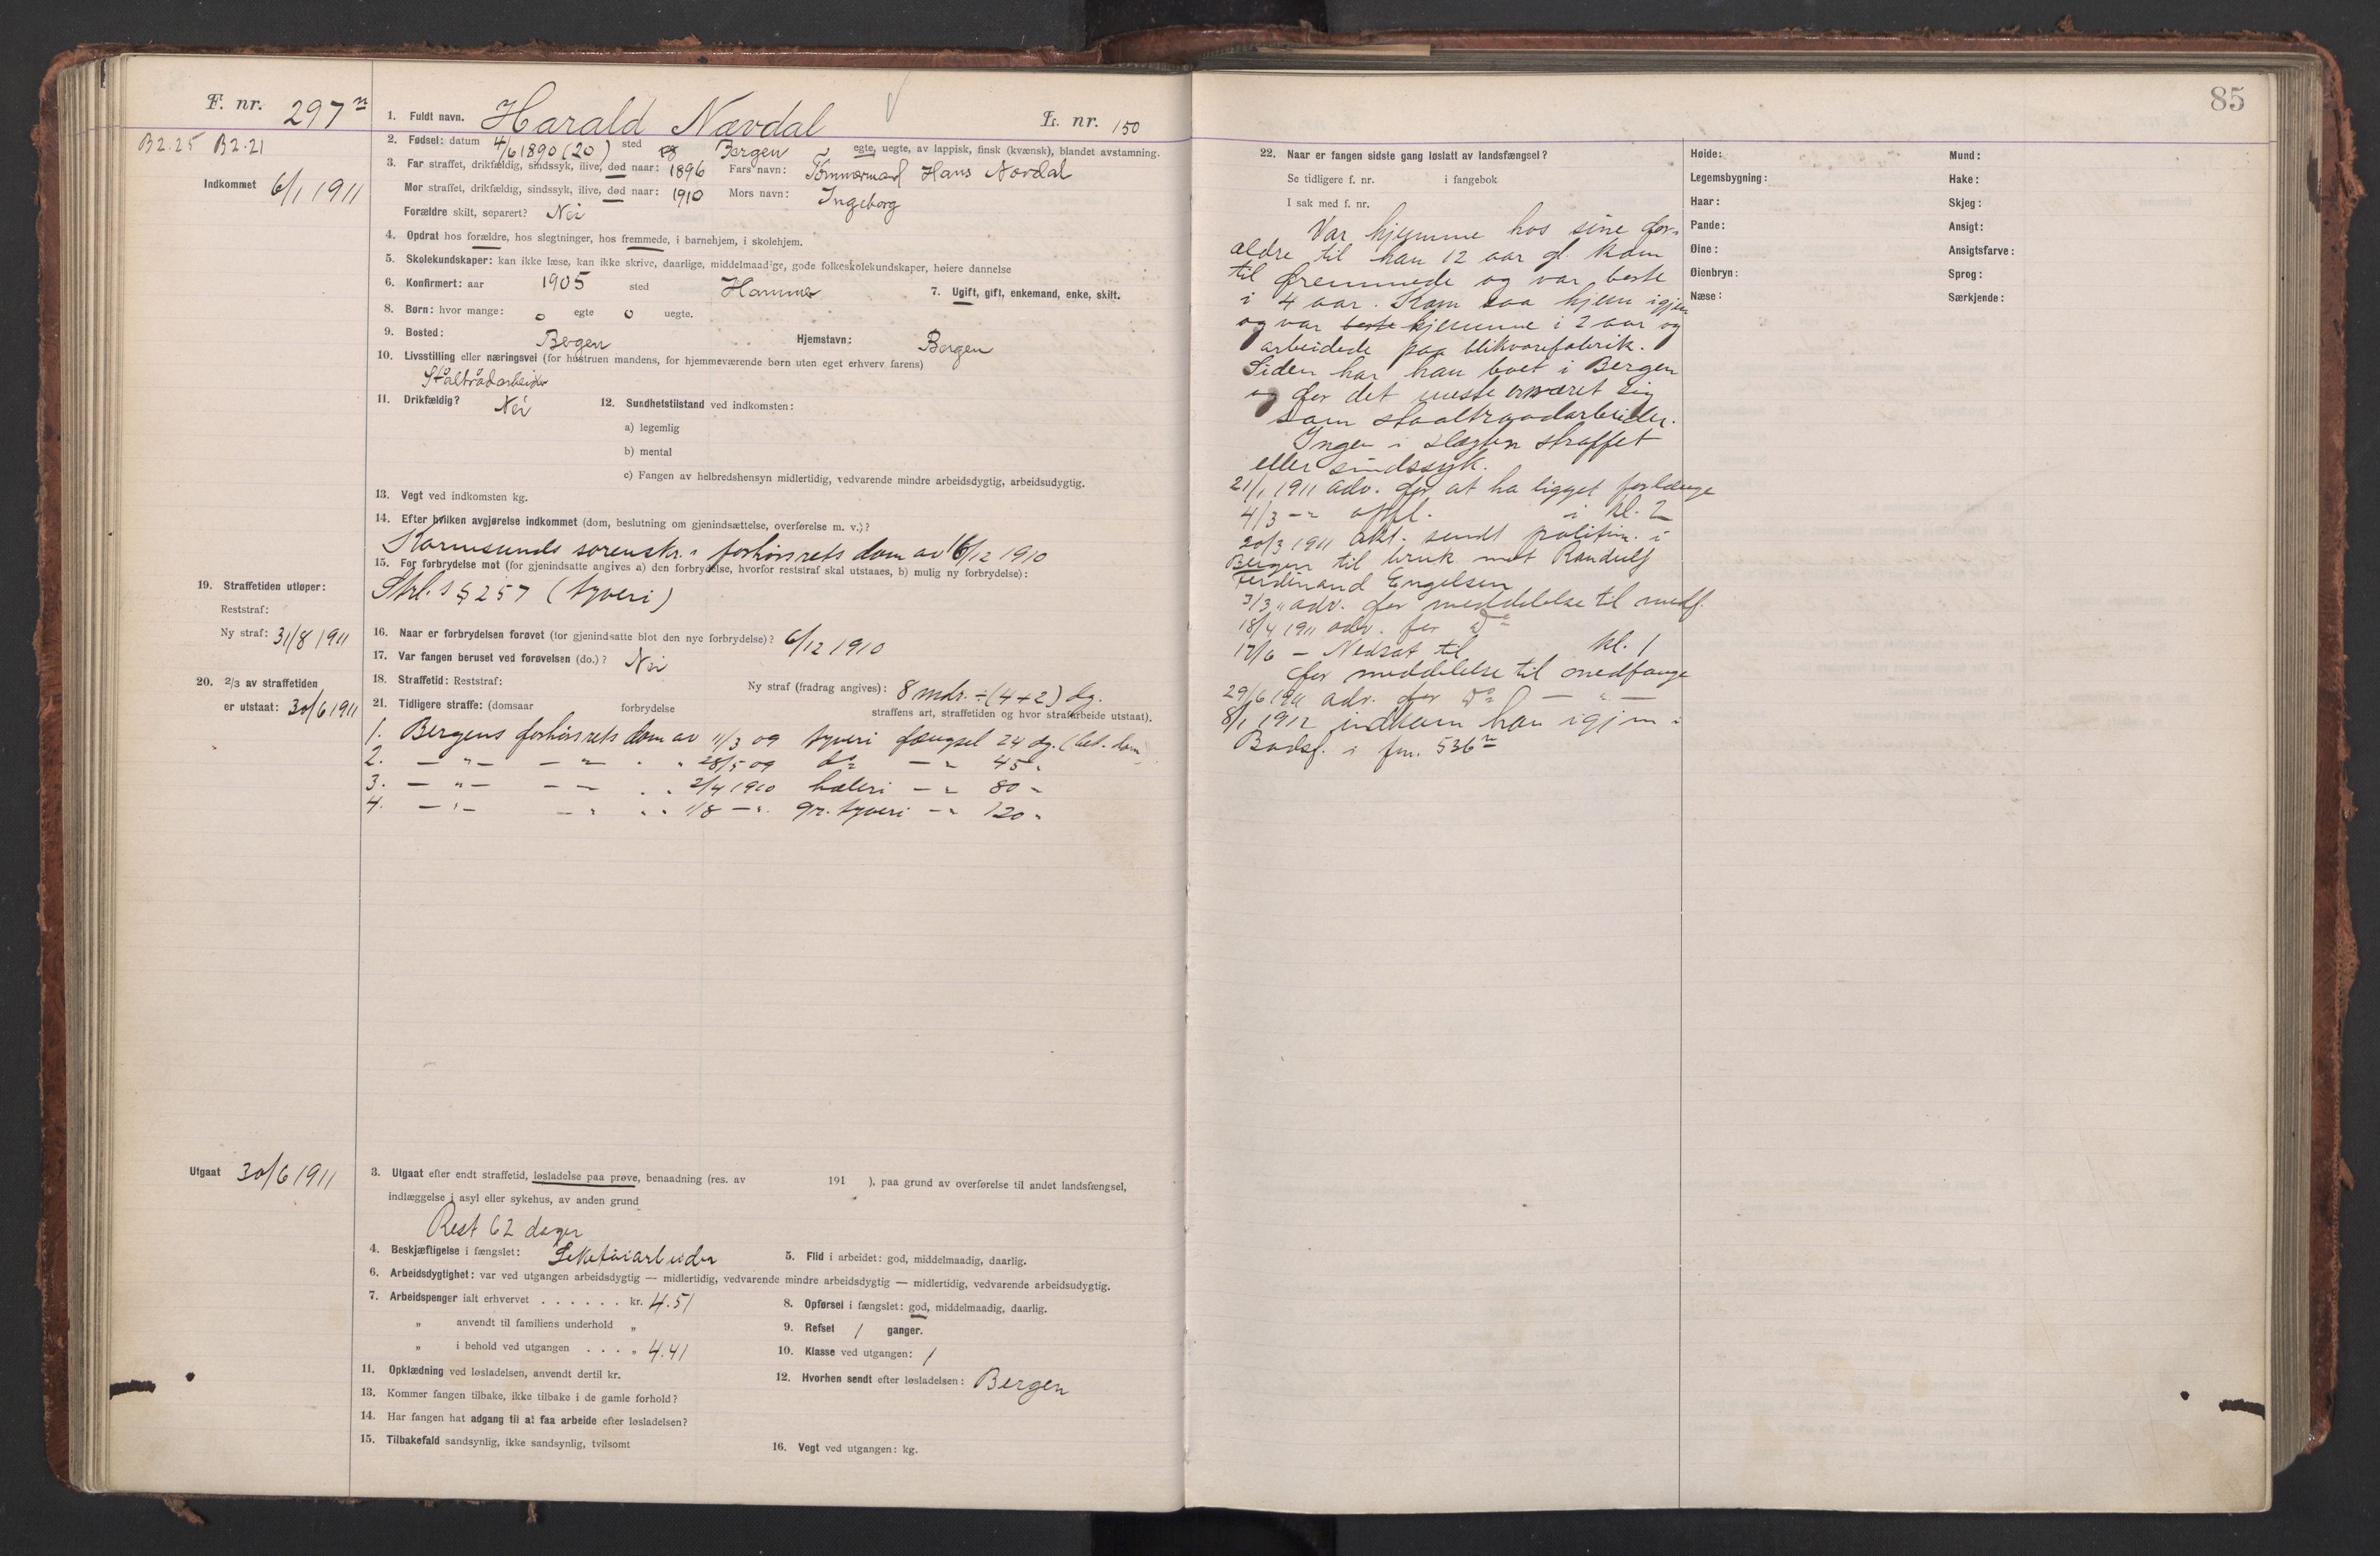 F. nr. 297 n
B2.25 B2.21
Indkommet 6/1 1911
1. Fuldt navn. Harald Nævdal L. nr. 150
2. Fødsel: datum 4/6 1890 (20) sted Bergen egte, uegte, av lappisk, finsk (kvænsk), blandet avstamning.
3. Far straffet, drikfældig, sindssyk, ilive, død naar: 1896 Fars navn: Tømmermand Hans Nævdal
Mor straffet, drikfældig, sindssyk, ilive, død naar: 1910 Mors navn: Ingeborg
Forældre skilt, separert? Nei
4. Opdrat hos forældre, hos slegtninger, hos fremmede, i barnehjem, i skolehjem.
5. Skolekundskaper: kan ikke læse, kan ikke skrive, daarlige, middelmaadige, gode folkeskolekundskaper, høiere dannelse
6. Konfirmert: aar 1905 sted Hammer 7. Ugift, gift, enkemand, enke, skilt.
8. Børn: hvor mange: 0 egte 0 uegte.
9. Bosted: Bergen Hjemstavn: Bergen
10. Livsstilling eller næringsvei (for hustruen mandens, for hjemmeværende børn uten eget erhverv farens)
Ståltrådarbeider
11. Drikfældig? Nei 12. Sundhetstilstand ved indkomsten:
a) legemlig
b) mental
c) Fangen av helbredshensyn midlertidig, vedvarende mindre arbeidsdygtig, arbeidsudygtig.
13. Vegt ved indkomsten kg.
14. Efter hvilken avgjørelse indkommet (dom, beslutning om gjenindsættelse, overførelse m. v.)?
Karmsunds sorenskr.s forhørsrets dom av 16/12 1910
15. For forbrydelse mot (for gjenindsatte angives a) den forbrydelse, hvorfor reststraf skal utstaaes, b) mulig ny forbrydelse):
Strl.s § 257 (tyveri)
19. Straffetiden utløper:
Reststraf:
Ny straf: 31/8 1911
16. Naar er forbrydelsen forøvet (for gjenindsatte blot den nye forbrydelse)? 6/12 1910
17. Var fangen beruset ved forøvelsen (do.)? Nei
18. Straffetid: Reststraf: Ny straf (fradrag angives): 8 mdr. ÷ (4+2) dg.
20. 2/3 av straffetiden
er utstaat: 30/6 1911
21. Tidligere straffe: (domsaar forbrydelse straffens art, straffetiden og hvor strafarbeide utstaat).
1. Bergens forhørsrets dom av 11/3 09 tyveri fængsel 24 dg. (bet. dom)
2. — " — — " — . " 28/5 09 do — " 45 "
3. — " — — " — . . 2/4 1910 heleri — " 80 "
4. — " — — " . . 1/8 — " . gr. tyveri — " 120 "
Utgaat 30/6 1911
3. Utgaat efter endt straffetid, løsladelse paa prøve, benaadning (res. av 191 ), paa grund av overførelse til andet landsfængsel,
indlæggelse i asyl eller sykehus, av anden grund
Rest 62 dager
4. Beskjæftigelse i fængslet: Leketøiarbeider 5. Flid i arbeidet: god, middelmaadig, daarlig.
6. Arbeidsdygtighet: var ved utgangen arbeidsdygtig — midlertidig, vedvarende mindre arbeidsdygtig — midlertidig, vedvarende arbeidsudygtig.
7. Arbeidspenger ialt erhvervet . . . . . . kr. 4.51 8. Opførsel i fængslet: god, middelmaadig, daarlig.
„ anvendt til familiens underhold „ 9. Refset 1 ganger.
„ i behold ved utgangen . . . „ 4.41 10. Klasse ved utgangen: 1
11. Opklædning ved løsladelsen, anvendt dertil kr. 12. Hvorhen sendt efter løsladelsen: Bergen
13. Kommer fangen tilbake, ikke tilbake i de gamle forhold?
14. Har fangen hat adgang til at faa arbeide efter løsladelsen?
15. Tilbakefald sandsynlig, ikke sandsynlig, tvilsomt 16. Vegt ved utgangen: kg.
85
22. Naar er fangen sidste gang løslatt av landsfængsel?
Se tidligere f. nr. i fangebok
I sak med f. nr.
Var hjemme hos sine for-
ældre til han 12 aar gl. Kom
til fremmede og var borte
i 4 aar. Kom saa hjem igjen
og var borte hjemme i 2 aar og
arbeidede paa blikvarefabrik.
Siden har han boet i Bergen
og for det meste ernæret sig
som staaltraadarbeider.
Ingen i slægten straffet
eller sindssyk.
21/1 1911 adv. for at ha ligget forlænge
4/3 — " opfl. i kl. 2
20/3 1911 akt. sendt politim. i
Bergen til bruk mot Randulf
Ferdinand Engelsen
3/3 " adv. for meddelelse til medf.
18/4 1911 adv. for do
17/6 — Nedsat til kl. 1
for meddelelse til medfange
29/6 1911 adv. for do — " —
8/1 1912 indkom han igjen i
Bodsf. i fnr. 536 n
Høide: Mund:
Legemsbygning: Hake:
Haar: Skjeg:
Pande: Ansigt:
Øine: Ansigtsfarve:
Øienbryn: Sprog:
Næse: Særkjende: